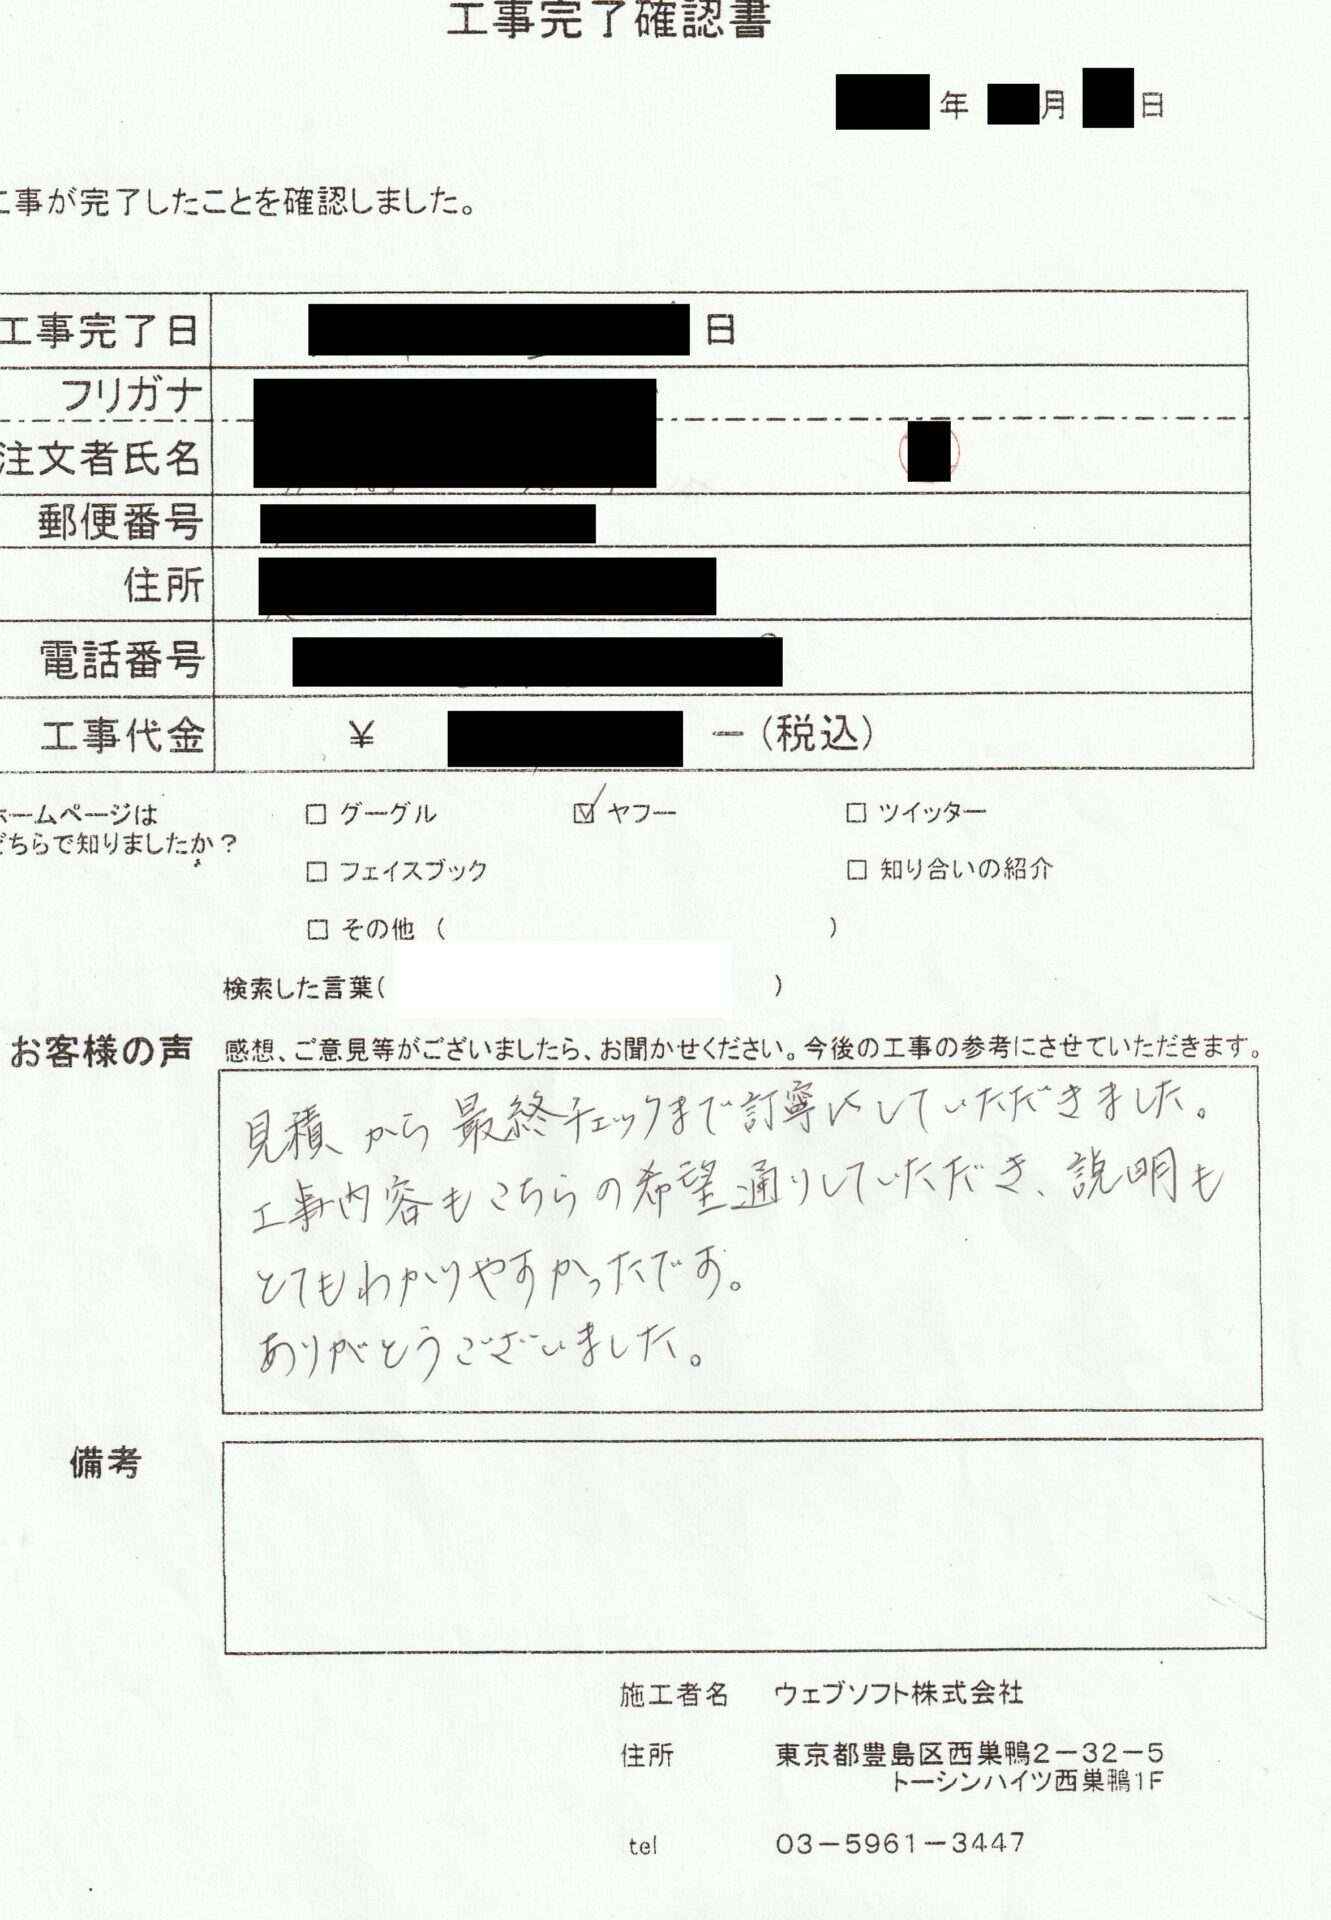 工事完了確認書
年 月 日
工事が完了したことを確認しました。
工事完了日 日
フリガナ
注文者氏名
郵便番号
住所
電話番号
工事代金 ¥ ー(税込)
ホームページは
どちらで知りましたか?
□ グーグル ☑ ヤフー □ ツイッター
□ フェイスブック □ 知り合いの紹介
□ その他 ( )
検索した言葉( )
お客様の声 感想、ご意見等がございましたら、お聞かせください。今後の工事の参考にさせていただきます。
見積から最終チェックまで訂寧にしていただきました。
工事内容もこちらの希望通りしていただき、説明も
とてもわかりやすかったです。
ありがとうございました。
備考
施工者名 ウェブソフト株式会社
住所 東京都豊島区西巣鴨2-32-5
トーシンハイツ西巣鴨1F
tel 03-5961-3447